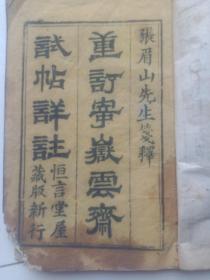 張眉山先生箋釋
重訂寄嶽雲齋
試帖詳註
恒言堂屋
藏版新行